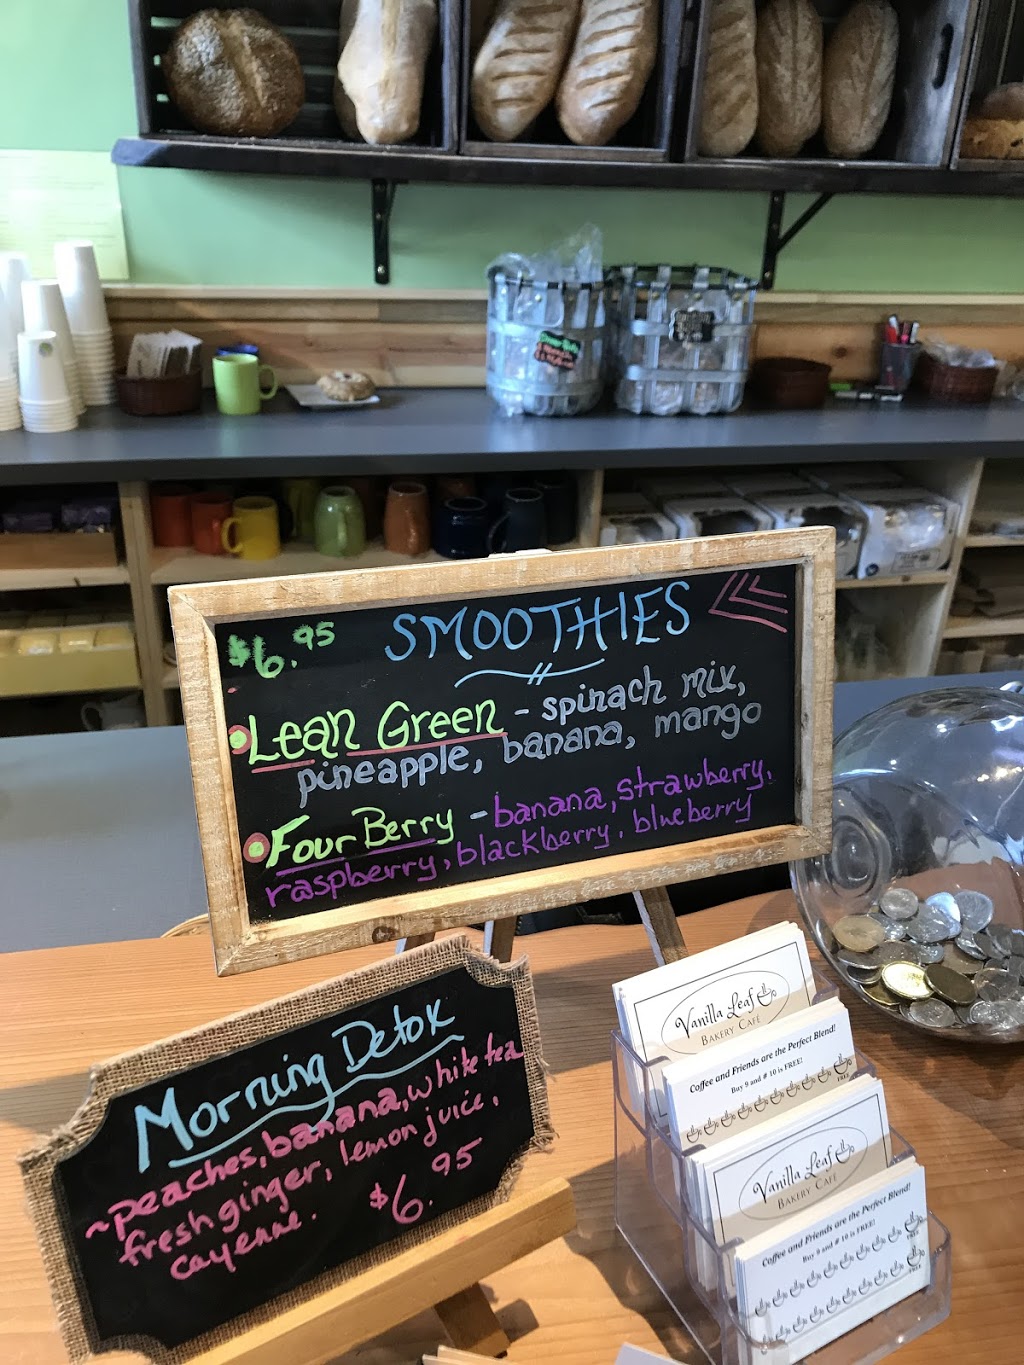 $6.95
SMOOTHIES
Lean Green - spinach mix,
pineapple, banana, mango
Four Berry - banana, strawberry,
raspberry, blackberry, blueberry
Morning Detox
~peaches, banana, white tea
fresh ginger, lemon juice,
cayenne.
$6.95
Vanilla Leaf
BAKERY CAFÉ
Coffee and Friends are the Perfect Blend!
Buy 9 and # 10 is FREE!
FREE
Vanilla Leaf
BAKERY CAFÉ
Coffee and Friends are the Perfect Blend!
Buy 9 and # 10 is FREE!
FREE